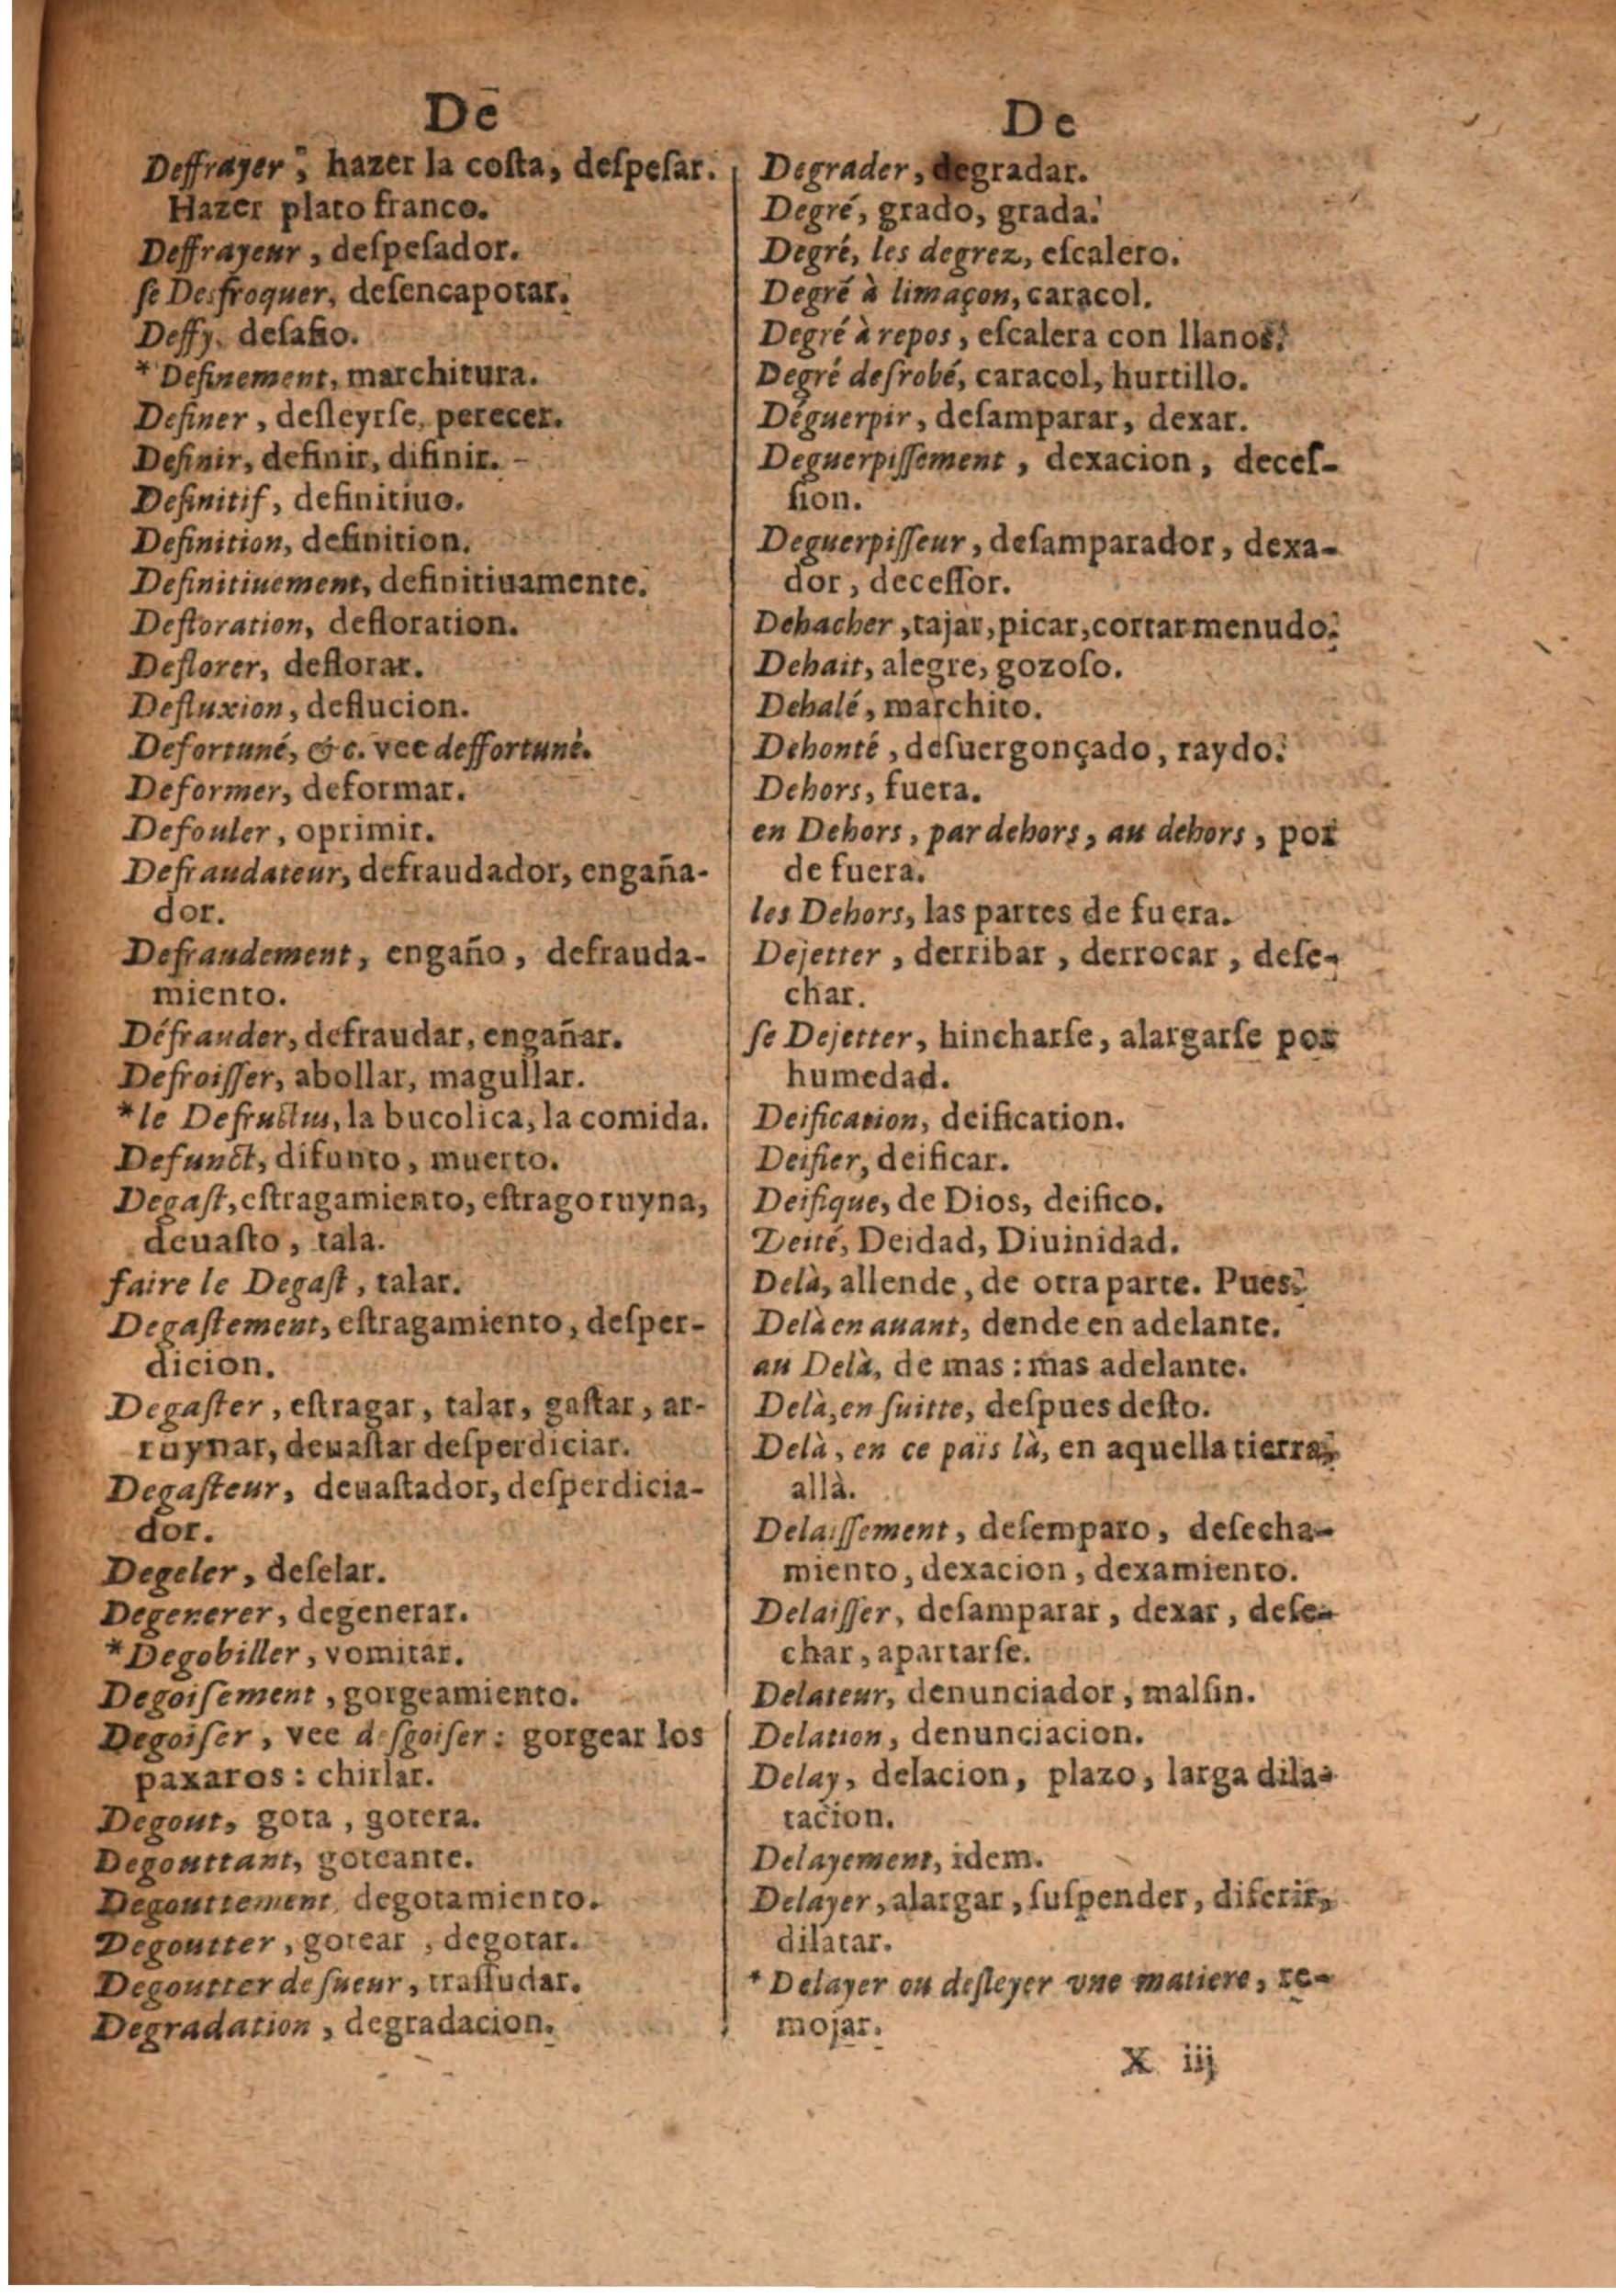 De
Deffrayer, hazer la costa, despeſar.
Hazer plato franco.
Deffrayeur, deſpeſador.
ſe Desfroquer, deſencapotar.
Deffy, deſafio.
*Definement, marchitura.
Definer, desleyrſe, perecer.
Definir, definir, difinir.
Definitif, definitiuo.
Definition, definition.
Definitiuement, definitiuamente.
Defloration, defloration.
Deflorer, deflorar.
Defluxion, deflucion.
Defortuné, &c. vee deffortuné.
Deformer, deformar.
Defouler, oprimir.
Defraudateur, defraudador, engaña-
dor.
Defraudement, engaño, defrauda-
miento.
Défrauder, defraudar, engañar.
Defroiſſer, abollar, magullar.
*le Defructus, la bucolica, la comida.
Defunct, difunto, muerto.
Degaſt, eſtragamiento, eſtrago ruyna,
deuaſto, tala.
faire le Degaſt, talar.
Degaſtement, eſtragamiento, deſper-
dicion.
Degaſter, eſtragar, talar, gaſtar, ar-
ruynar, deuaſtar deſperdiciar.
Degaſteur, deuaſtador, deſperdicia-
dor.
Degeler, deſelar.
Degenerer, degenerar.
*Degobiller, vomitar.
Degoiſement, gorgeamiento.
Degoiſer, vee deſgoiſer: gorgear los
paxaros: chirlar.
Degout, gota, gotera.
Degouttant, goteante.
Degouttement, degotamiento.
Degoutter, gotear, degotar.
Degoutter de ſueur, traſſudar.
Degradation, degradacion.
De
Degrader, degradar.
Degré, grado, grada.
Degré, les degrez, eſcalero.
Degré à limaçon, caracol.
Degré à repos, eſcalera con llanos.
Degré deſrobé, caracol, hurtillo.
Déguerpir, deſamparar, dexar.
Deguerpiſſement, dexacion, deceſ-
ſion.
Deguerpiſſeur, deſamparador, dexa-
dor, deceſſor.
Dehacher, tajar, picar, cortar menudo.
Dehait, alegre, gozoſo.
Dehalé, marchito.
Dehonté, deſuergonçado, raydo.
Dehors, fuera.
en Dehors, par dehors, au dehors, por
de fuera.
les Dehors, las partes de fuera.
Dejetter, derribar, derrocar, deſe-
char.
ſe Dejetter, hincharſe, alargarſe por
humedad.
Deification, deification.
Deifier, deificar.
Deifique, de Dios, deifico.
Deité, Deidad, Diuinidad.
Delà, allende, de otra parte. Pues.
Delà en auant, dende en adelante.
au Delà, de mas: mas adelante.
Delà, en ſuitte, deſpues deſto.
Delà, en ce païs là, en aquella tierra,
allà.
Delaiſſement, deſemparo, deſecha-
miento, dexacion, dexamiento.
Delaiſſer, deſamparar, dexar, deſe-
char, apartarſe.
Delateur, denunciador, malſin.
Delation, denunciacion.
Delay, delacion, plazo, larga dila-
tacion.
Delayement, idem.
Delayer, alargar, ſuſpender, diferir,
dilatar.
*Delayer ou deſleyer vne matiere, re-
mojar.
X iij